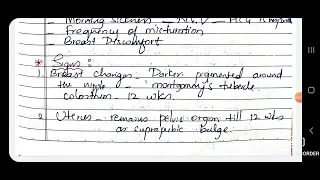 - Morning Sickness - N&V - HCG is
- Frequency of micturation
- Breast Discomfort
* Signs :
1. Breast changes - Darker pigmented around
the nipple - montgomery's tubercle
colostrum 12 wks.
2. Uterus - remains pelvic organ till 12 wks
or suprapubic bulge
ORDER